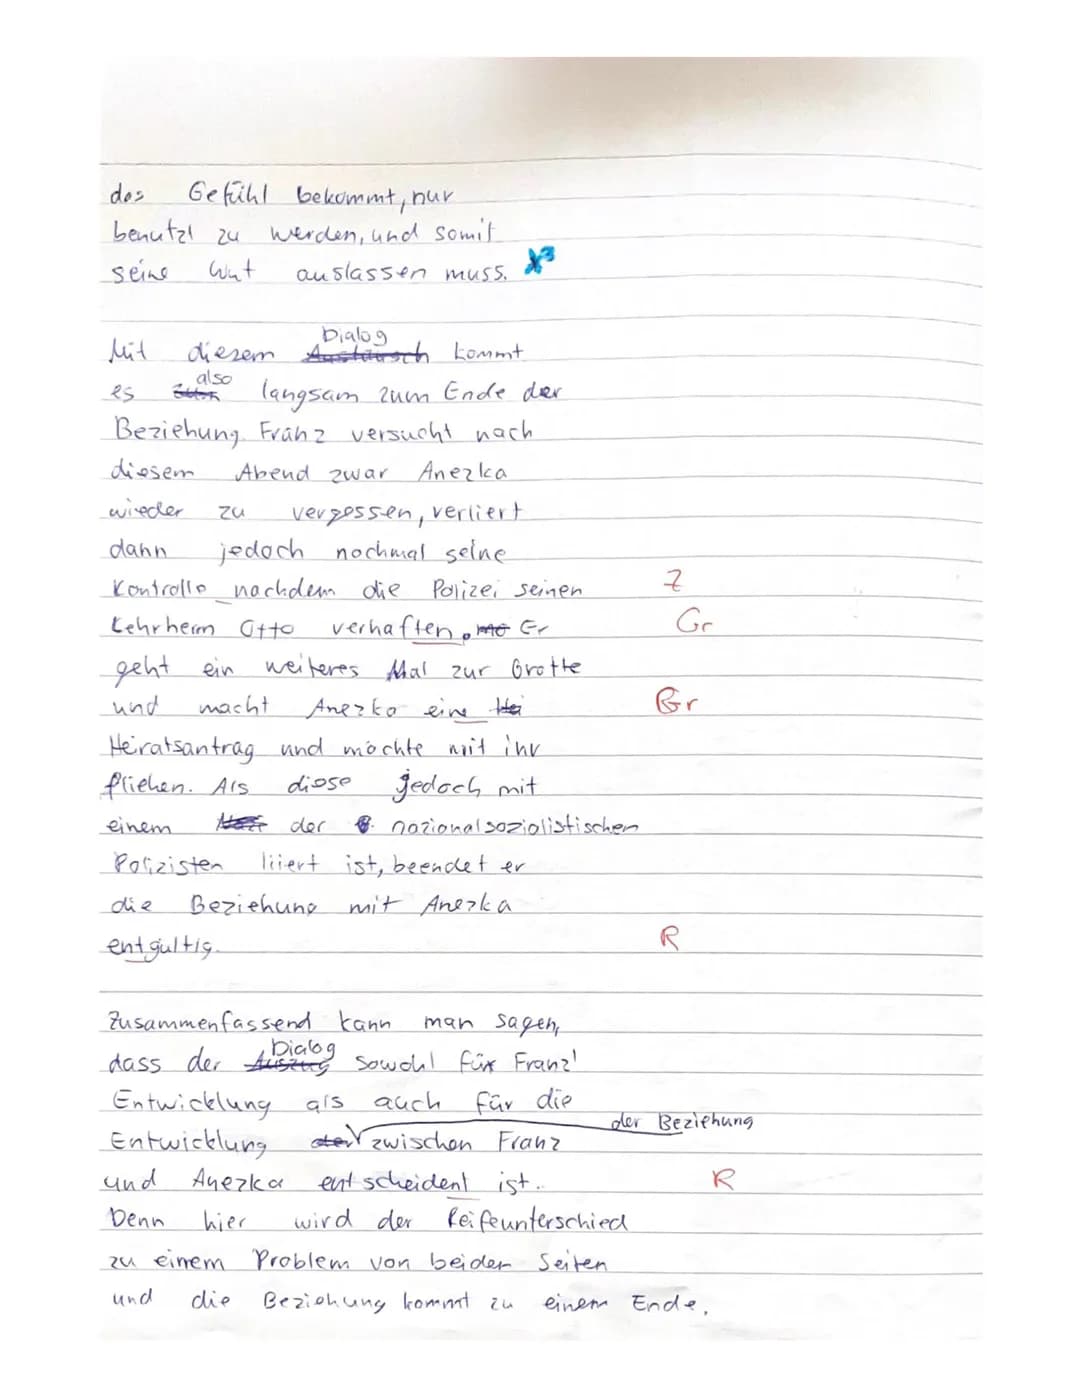 das Gefühl bekommt, nur
benutzt zu werden, und somit
seine Wut auslassen muss. X³
Dialog
Mit diesem Austausch kommt
also
es langsam zum Ende der
Beziehung. Franz versucht nach
diesem Abend zwar Anezka
wieder zu vergessen, verliert
dann jedoch nochmal seine
Kontrolle nachdem die Polizei seinen Z
Lehrherrn Otto verhaften. Er Gr
geht ein weiteres Mal zur Grotte
und macht Anezka eine Hei Gr
Heiratsantrag und möchte mit ihr
fliehen. Als diese jedoch mit
einem der nazionalsozialistischen
Polizisten liiert ist, beendet er
die Beziehung mit Anezka
entgültig. R
Zusammenfassend kann man sagen,
Dialog
dass der Auszug sowohl für Franz'
Entwicklung als auch für die
der Beziehung
Entwicklung der zwischen Franz
und Anezka entscheident ist. R
Denn hier wird der Reifeunterschied
zu einem Problem von beiden Seiten
und die Beziehung kommt zu einem Ende.